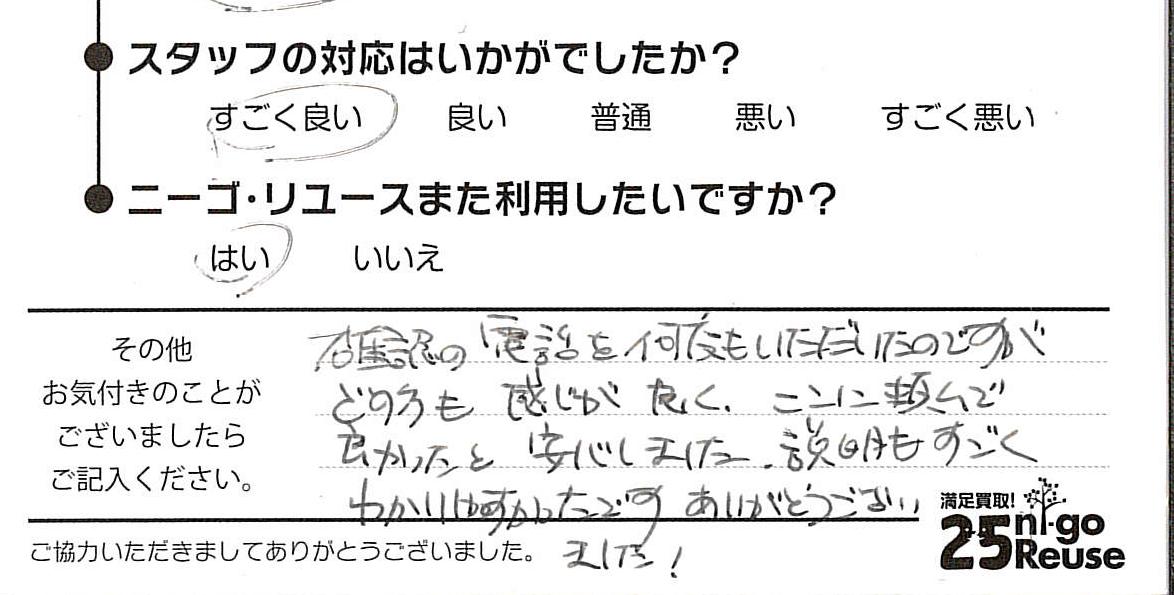 スタッフの対応はいかがでしたか?
すごく良い 良い 普通 悪い すごく悪い
ニーゴ・リユースまた利用したいですか?
はい いいえ
その他
お気付きのことが
ございましたら
ご記入ください。
確認の電話を何度もいただいたのですが
どの方も感じが良く、ここに頼んで
良かったと安心しました。説明もすごく
わかりやすかったです ありがとうござい
ました!
満足買取!
25 ni-go
Reuse
ご協力いただきましてありがとうございました。